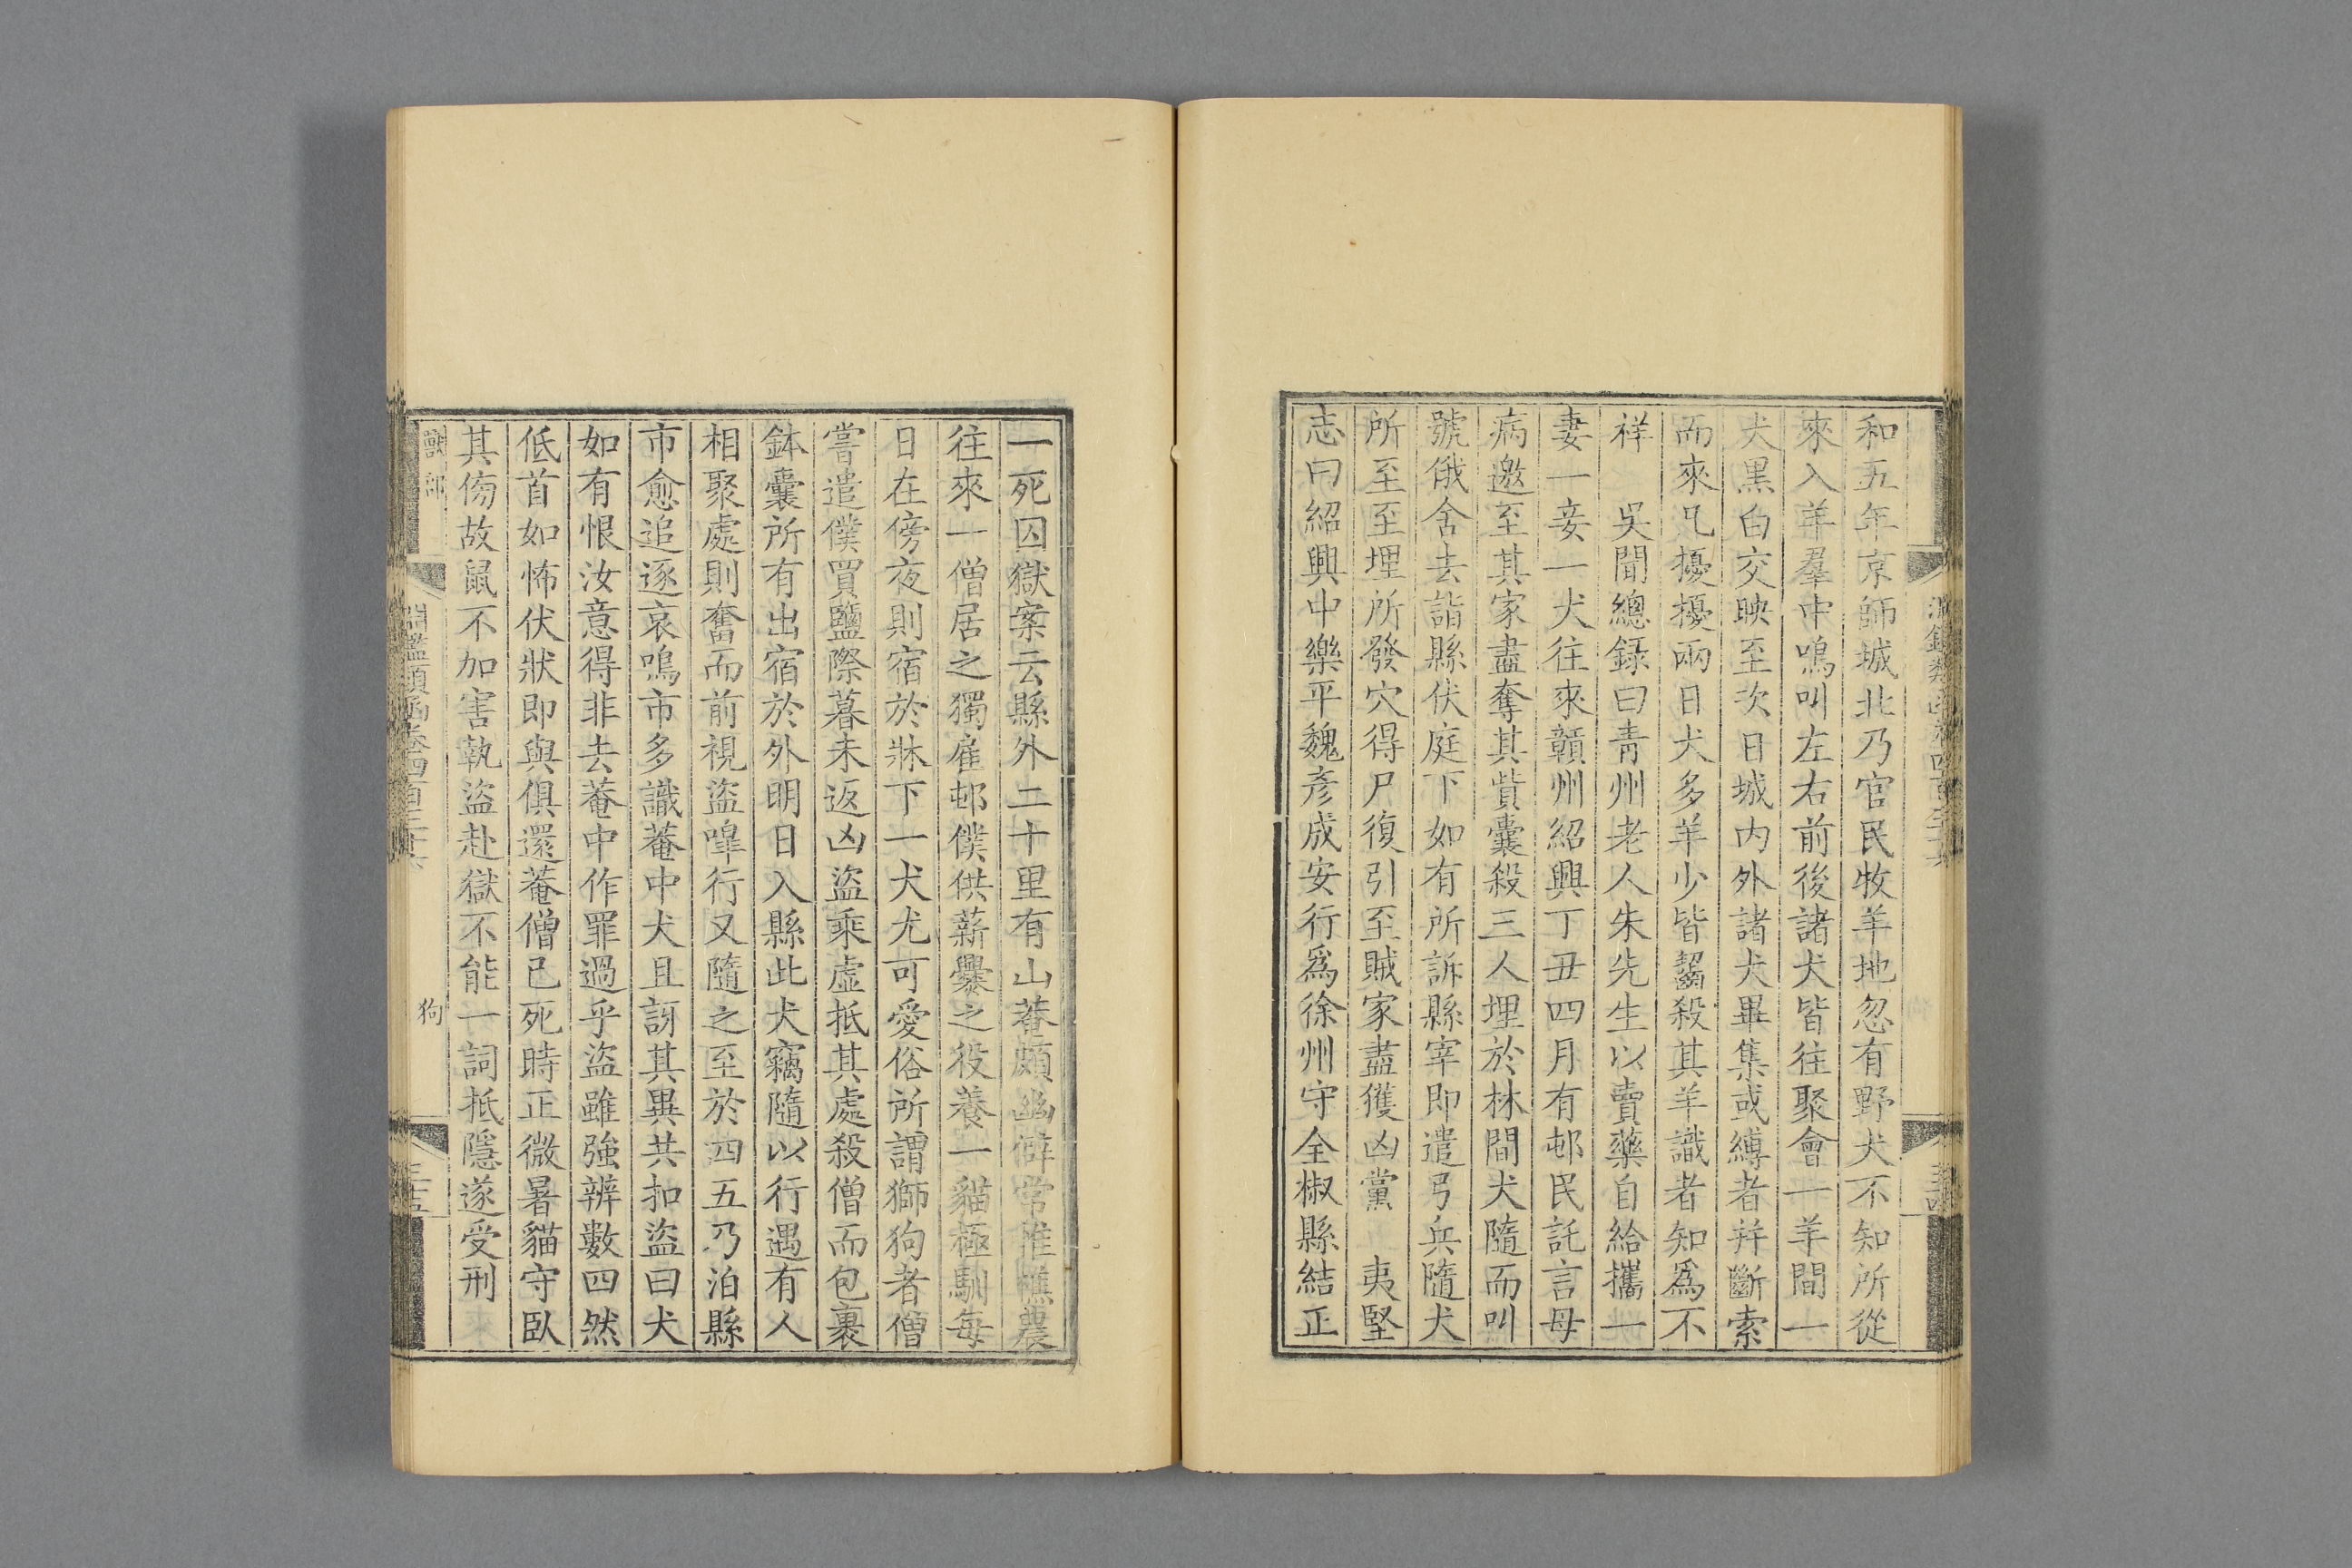 和五年京師城北乃官民牧羊地忽有野犬不知所從
來入羊羣中鳴叫左右前後諸犬皆往聚會一羊間一
犬黑白交映至次日城內外諸犬畢集或縛者幷斷索
而來凡擾擾兩日犬多羊少皆齧殺其羊識者知爲不
祥　吳聞總錄曰青州老人朱先生以賣藥自給攜一
妻一妾一犬往來贛州紹興丁丑四月有邨民託言母
病邀至其家盡奪其貲囊殺三人埋於林間犬隨而叫
號俄舍去詣縣伏庭下如有所訴縣宰即遣弓兵隨犬
所至至埋所發穴得尸復引至賊家盡獲凶黨　夷堅
志曰紹興中樂平魏彥成安行爲徐州守全椒縣結正
一死囚獄案云縣外二十里有山菴頗幽僻常推樵農
往來一僧居之獨雇邨僕供薪爨之役養一貓極馴每
日在傍夜則宿於牀下一犬尤可愛俗所謂獅狗者僧
嘗遣僕買鹽際暮未返凶盜乘虛抵其處殺僧而包裹
鉢囊所有出宿於外明日入縣此犬竊隨以行遇有人
相聚處則奮而前視盜嘷行又隨之至於四五乃泊縣
市愈追逐哀鳴市多識菴中犬且訝其異共扣盜曰犬
如有恨汝意得非去菴中作罪過乎盜雖強辨數四然
低首如怖伏狀即與俱還菴僧已死時正微暑貓守臥
其傍故鼠不加害執盜赴獄不能一詞抵隱遂受刑
獸部
淵鑑類函卷四百三十六
狗
三十五